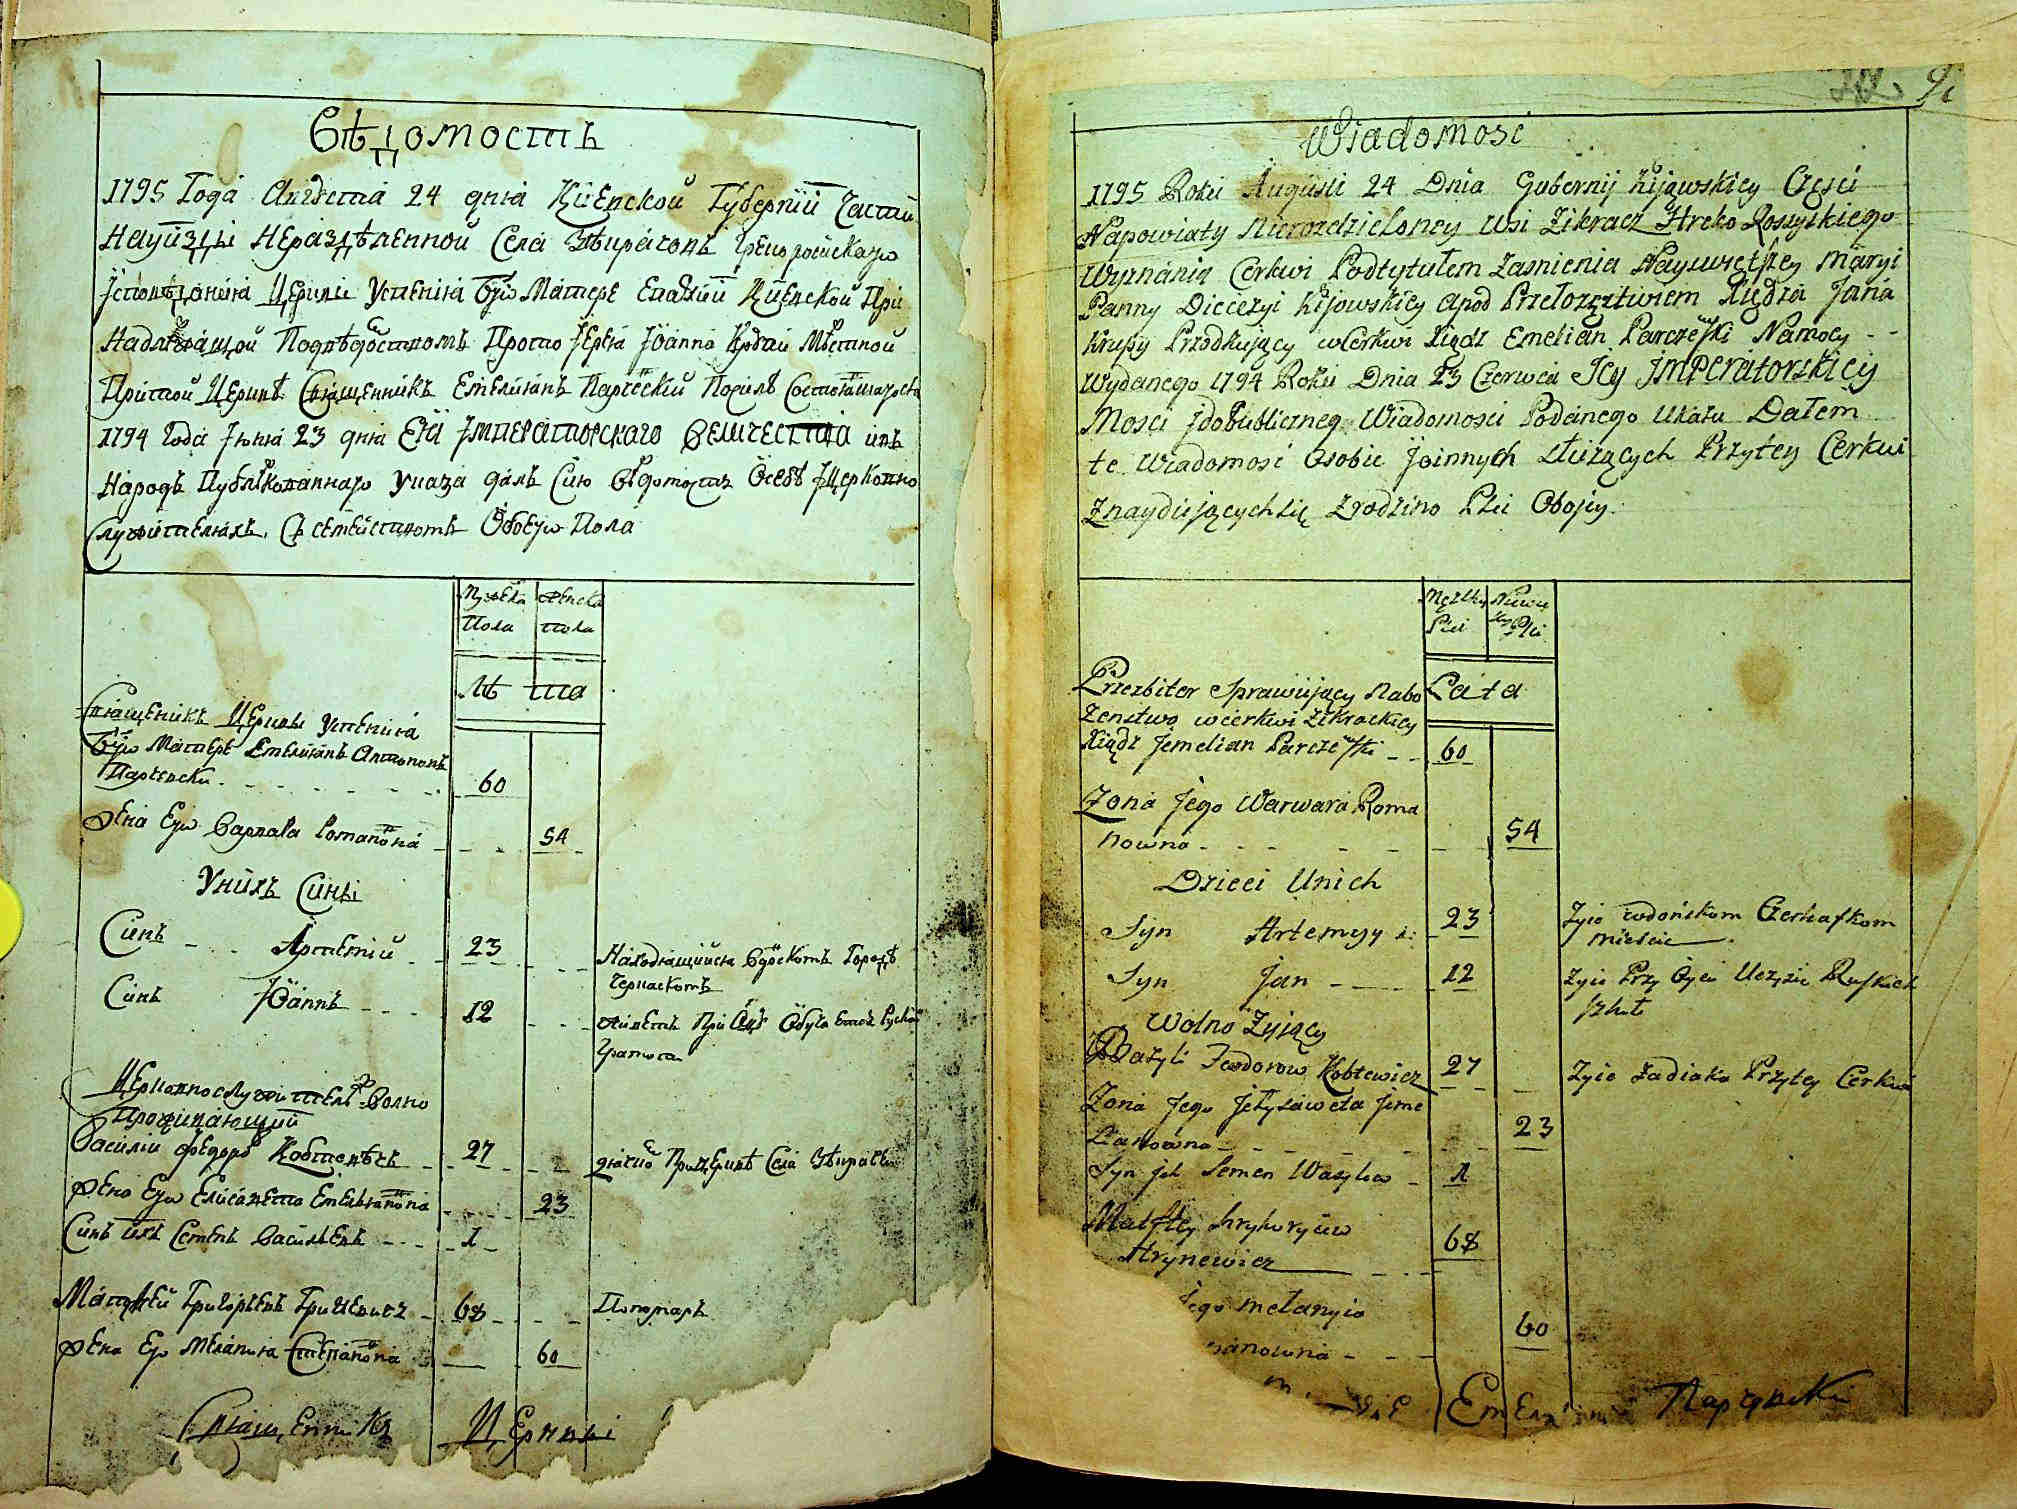 Вѣдомость
1795 Года Августа 24 дня Кіевской Губерніи Части
На уизды Нераздѣленной Села Звиратовъ Грекоросискаго
Исповѣданія Церкви Успенія Бжіо Матере Епархіи Кіевской При
Надлежащой Подвѣдомствомъ Прото Іерея Іоанна Крупи Мѣстной
При той Церквѣ Священникъ Емелиянъ Парчевскій Посилѣ Состоявшагося
1794 Года Іюня 23 дня Ея Імператорского Величества въ
Народъ Публѣкованнаго Указа далъ Сію Вѣдомость О себѣ Іцерковно
Служителяхъ Съ семействомъ Обоего Пола
Мужеска женска
Пола пола
Лѣ та
Священикъ Церкви Успенія
Бжіо Матере Емелиянъ Антоновъ
Парчевски 60
Жена Его Варвара Романовна 54
У нихъ Сини
Синъ Артемій 23 Находящийся Вдонскомъ Городѣ
Черкаскомъ
Синъ Іоаннъ 12 живетъ При Оцѣ Обучается Руской
Грамоти
Церковнослужителѣ Волно
Проживающий
Василій Федоровъ Кобтевичъ 27 дячкъ При Церквѣ Села
Жена Его Елисавета Емельяновна 23
Синъ ихъ Семенъ Васильевъ 1
Матфей Григорьевъ Гриневичъ 68 Пономаръ
Жена Его Меланія Степановна 60
Священникъ Церкви
91
Wiadomosc
1795 Roku Augusti 24 Dnia Gubernij Kijowskiey Częsci
Na powiaty Nierozdzieloney Wsi Zikracz Hreko Rossyiskiego
Wyznania Cerkwi Pod tytułem Zasnienia Nayswiętszey Maryi
Panny Diecezyi Kijowskiey a pod Przełozęstwem Xiędza Jana
Krupy Przodkujący w Cerkwi Xiądz Emelian Parczewski Na mocy
Wydanego 1794 Roku Dnia 23 Czerwca Jey Imperatorskiey
Mosci J do Publiczney Wiadomosci Podanego Ukazu Dałem
te Wiadomosc Osobie J innych słuzących Przy tey Cerkwi
Znayduiących się Zrodzino Płci Oboiey.
Męzkiey Niewie
Płci skiey Płci
Lata
Prezbiter Sprawuiący Nabo
zenstwo w cerkwi Zikrackiey
Xiądz Jemelian Parczewski 60
Zona Jego Warwara Roma
nowna 54
Dzieci U nich
Syn Artemyy 23 Zyie w dońskom Czerkaskom
miescie
Syn Jan 12 Zyie Przy Oycu Uczy się Ruskich
szkoł
Wolno Zyiący
Bazyli Feodorow Kobtewicz 27 Zyie za diaka Przy tey Cerkwi
Zona Jego Jełyzaweta Jeme
lianowna 23
Syn ich Semen Wasylow 1
Matftey hryhoryiew
Hrynewicz 68
Jego Melanyia
panowna 60
Парчевски